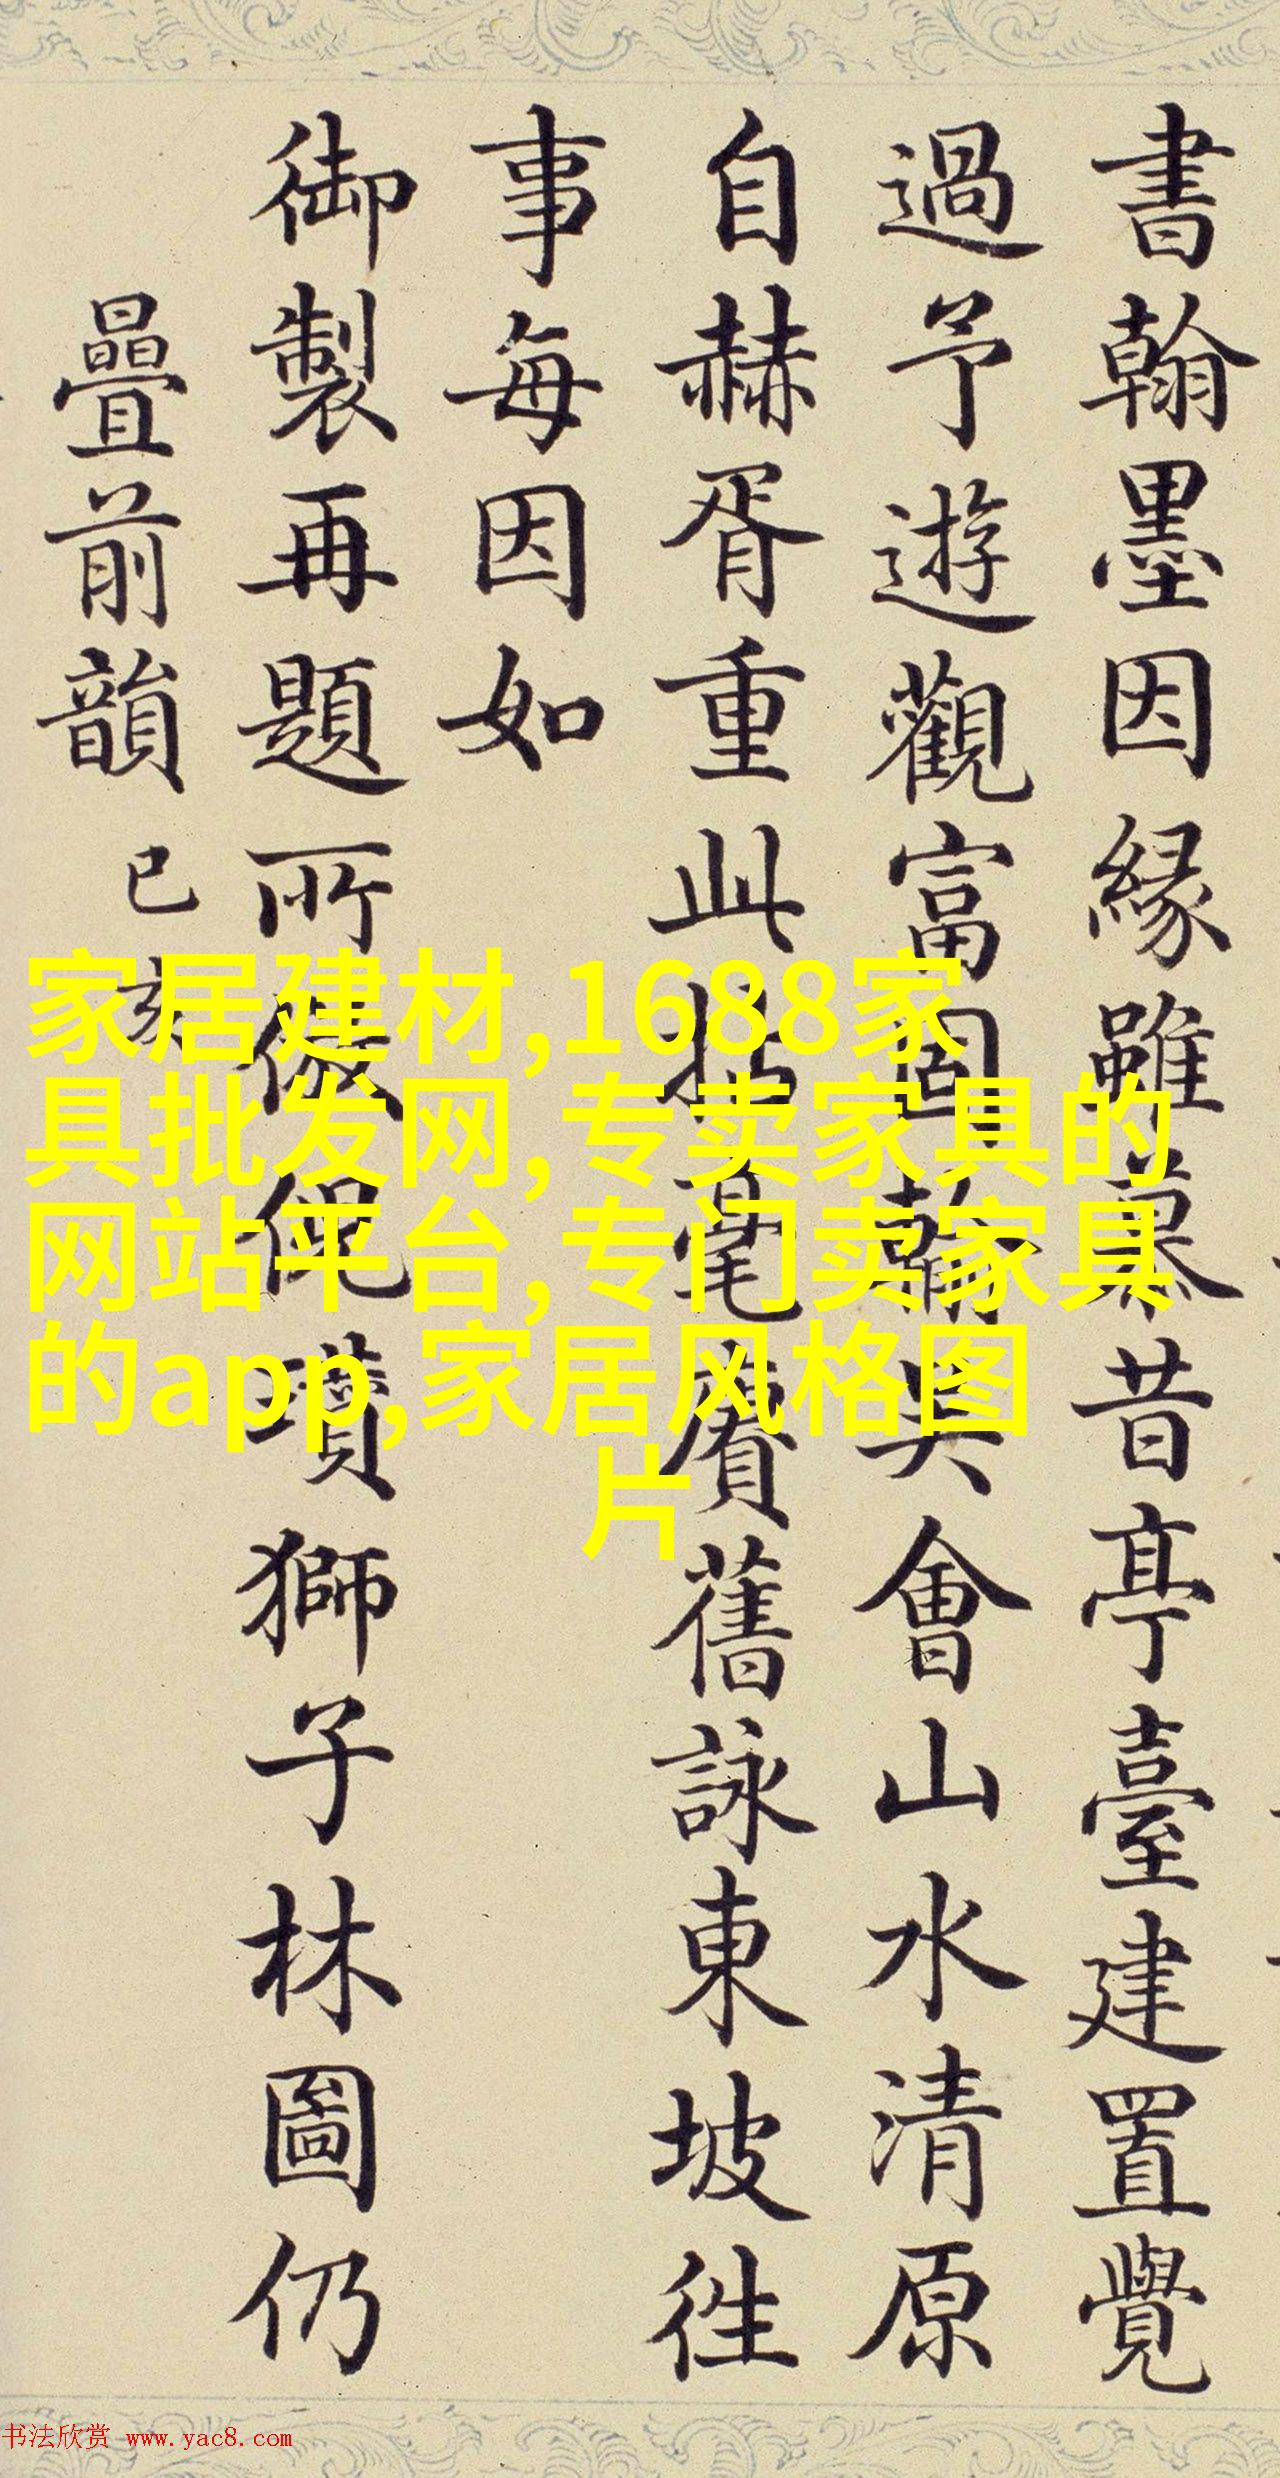 書翰墨因緣雖慕昔亭臺建置覺
過予遊觀富固翰吳會山水清原
自赫胥重此拈毫賡舊詠東坡徃
事每因如
御製再題所倣倪瓚獅子林圖仍
疊前韻 已亥
家居建材,1688家
具批发网,专卖家具的
网站平台,专门卖家具
的app,家居风格图
片
书法欣赏 www.yac8.com